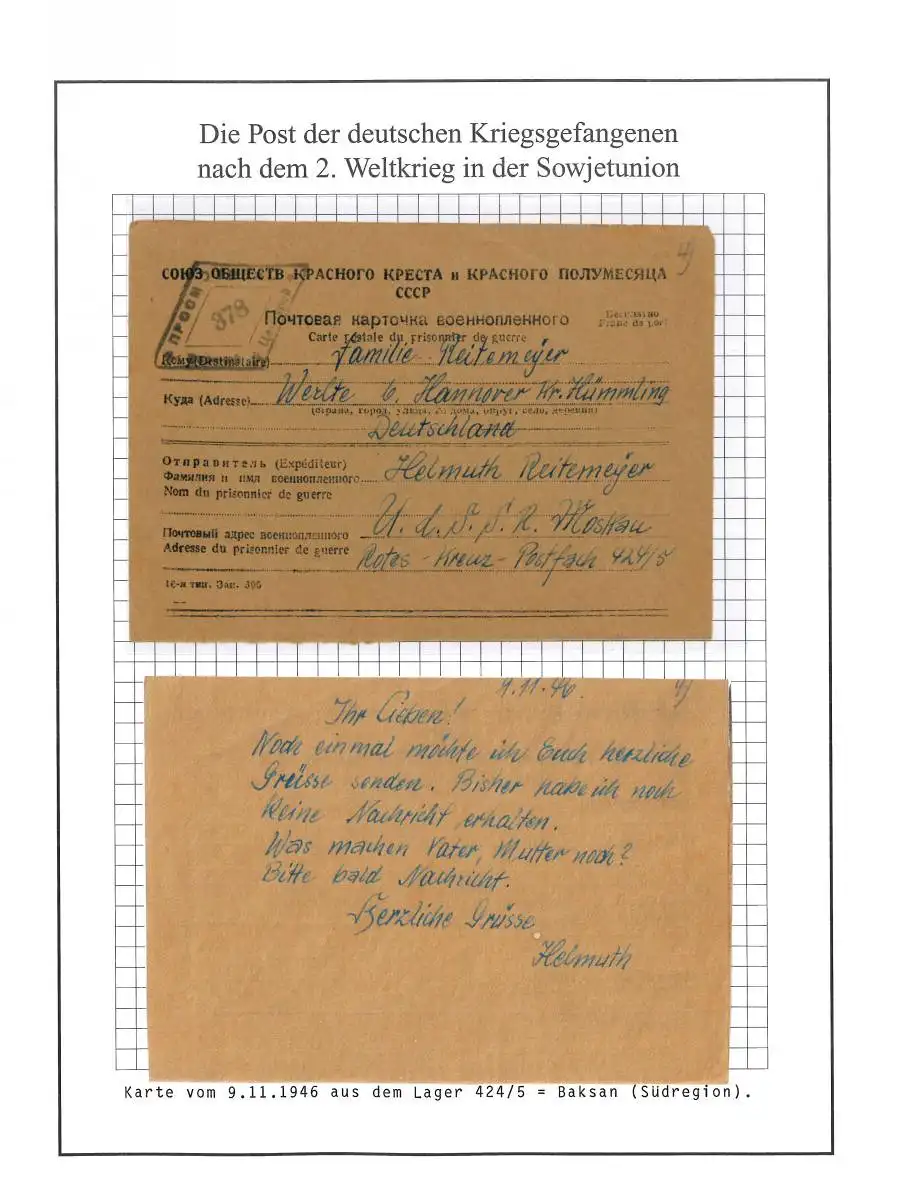 Die Post der deutschen Kriegsgefangenen
nach dem 2. Weltkrieg in der Sowjetunion
4)
СОЮЗ ОБЩЕСТВ КРАСНОГО КРЕСТА и КРАСНОГО ПОЛУМЕСЯЦА
СССР
ПРОСМ
378
Почтовая карточка военнопленного
Бесплатно
Franc de port
Carte postale du prisonnier de guerre
Кому (Destinataire) Familie Reitemeyer
Куда (Adresse) Werlte b. Hannover Kr. Hümmling
(страна, город, улица, № дома, округ, село, деревня)
Deutschland
Отправитель (Expéditeur)
Фамилия и имя военнопленного Helmuth Reitemeyer
Nom du prisonnier de guerre
Почтовый адрес военнопленного U. d. S. S. R. Moskau
Adresse du prisonnier de guerre Rotes - Kreuz - Postfach 424/5
16-я тип. Зак. 395
9.11.46. 4)
Ihr Lieben!
Noch einmal möchte ich Euch herzliche
Grüsse senden. Bisher habe ich noch
keine Nachricht erhalten.
Was machen Vater, Mutter noch?
Bitte bald Nachricht.
Herzliche Grüsse
Helmuth
Karte vom 9.11.1946 aus dem Lager 424/5 = Baksan (Südregion).